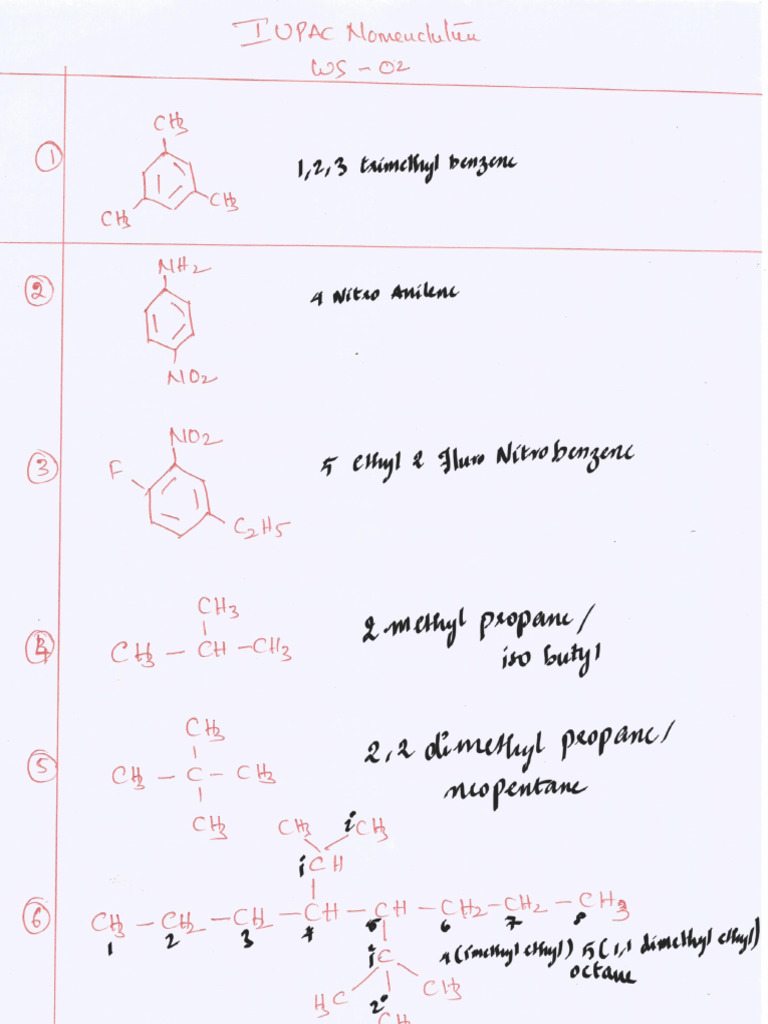 IUPAC Nomenclature
WS - 02
1
CH3
CH3
CH3
1,2,3 trimethyl benzene
2
NH2
4 Nitro Anilene
NO2
3
NO2
F
C2H5
5 Ethyl 2 Fluro Nitrobenzene
4
CH3
CH3 - CH - CH3
2 methyl propane /
iso butyl
5
CH3
CH3 - C - CH3
CH3
2,2 dimethyl propane /
neopentane
CH3 CH3
CH
6
CH3 - CH2 - CH2 - CH - CH - CH2 - CH2 - CH3
1 2 3 4 5 6 7 8
4 (1methyl ethyl) 5 (1,1 dimethyl ethyl)
octane
C
H3C CH3
2
CH3